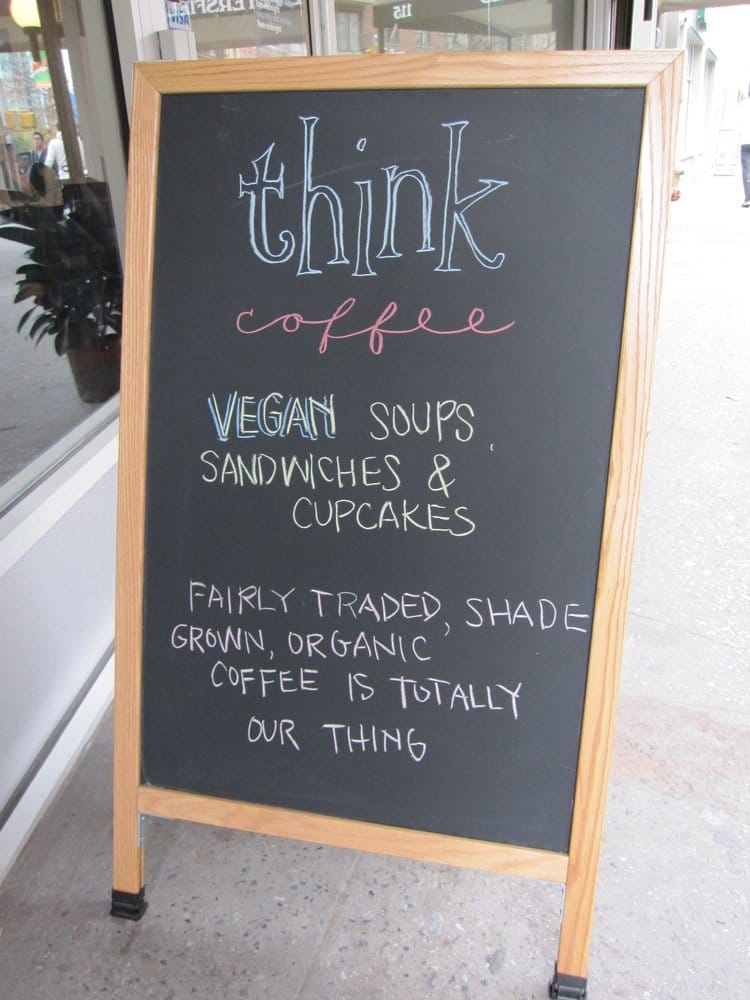 115
think
coffee
VEGAN SOUPS,
SANDWICHES &
CUPCAKES
FAIRLY TRADED, SHADE
GROWN, ORGANIC
COFFEE IS TOTALLY
OUR THING